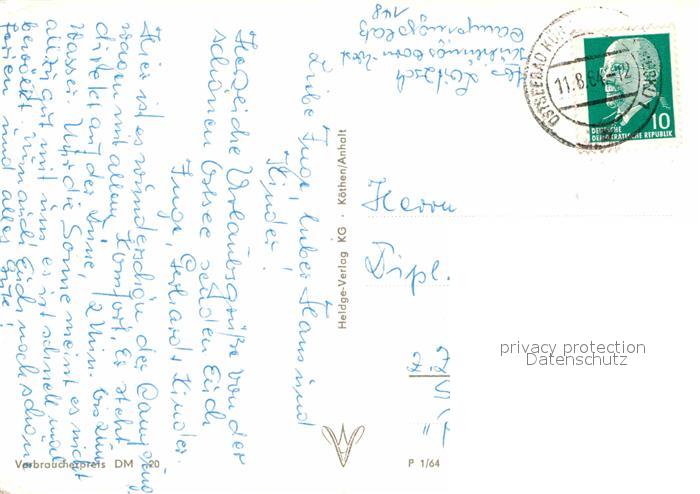 Liebe Inge, lieber Hans und
Kinder!
Herzliche Urlaubsgrüße von der
schönen Ostsee senden Euch
Inge, Gerhard + Kinder.
Hier ist es wunderschön der Camping
wagen mit allem Komfort. Er steht
direkt auf der Düne, 2 Min. bis zum
Wasser. Nur die Sonne meint es nicht
allzu gut mit uns es ist schnell mal
bewölkt. Wünsch Euch noch schöne
Ferien und alles Gute!
Kühlungsborn-West
Campingplatz
148
OSTSEEBAD KÜH
11.8.64-12
10
DEUTSCHE
DEMOKRATISCHE REPUBLIK
Herrn
Dipl.
z. Z.
Heldge-Verlag KG · Köthen/Anhalt
Verbraucherpreis DM -20
P 1/64
privacy protection
Datenschutz